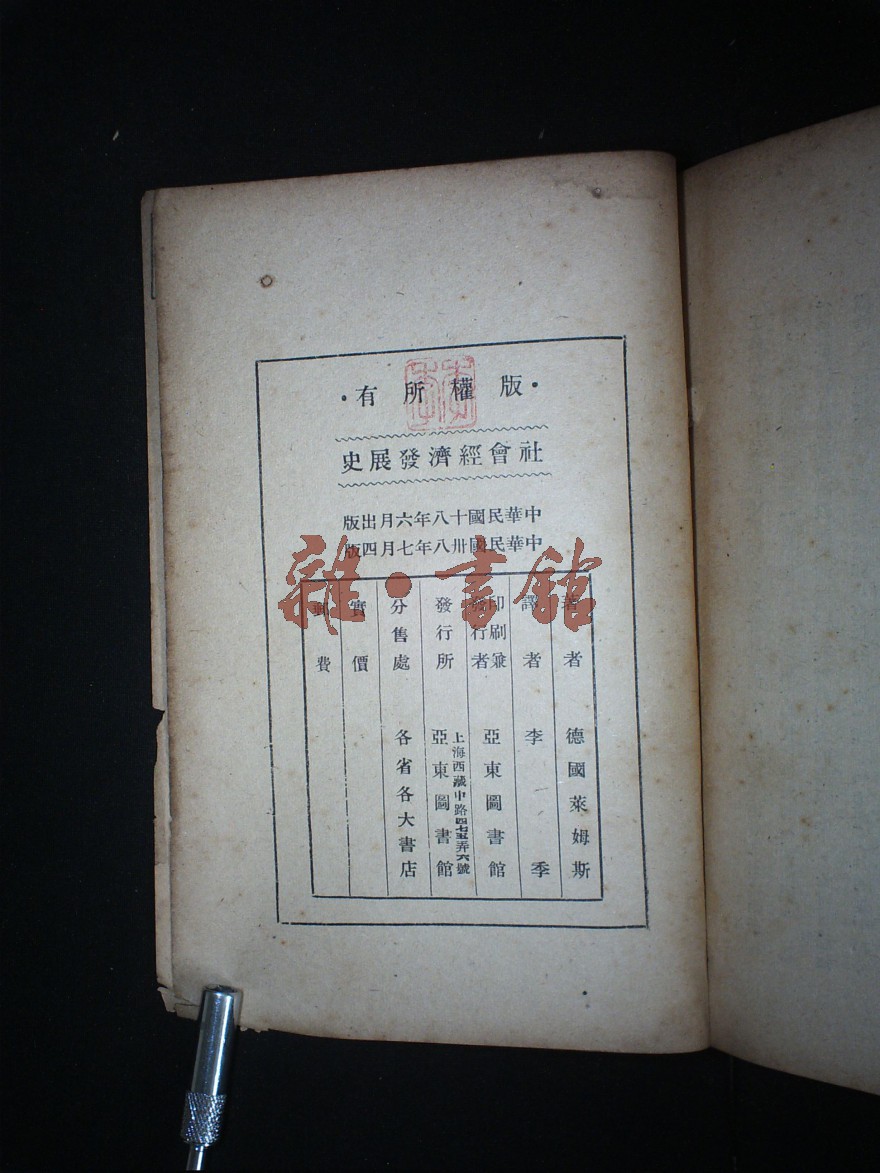 ·版權所有·
社會經濟發展史
中華民國十八年六月出版
中華民國卅八年七月四版
著者 德國萊姆斯
譯者 李季
印刷兼發行者 亞東圖書館
發行所 上海西藏中路四七五弄六號 亞東圖書館
分售處 各省各大書店
實價
郵費
雜·書館